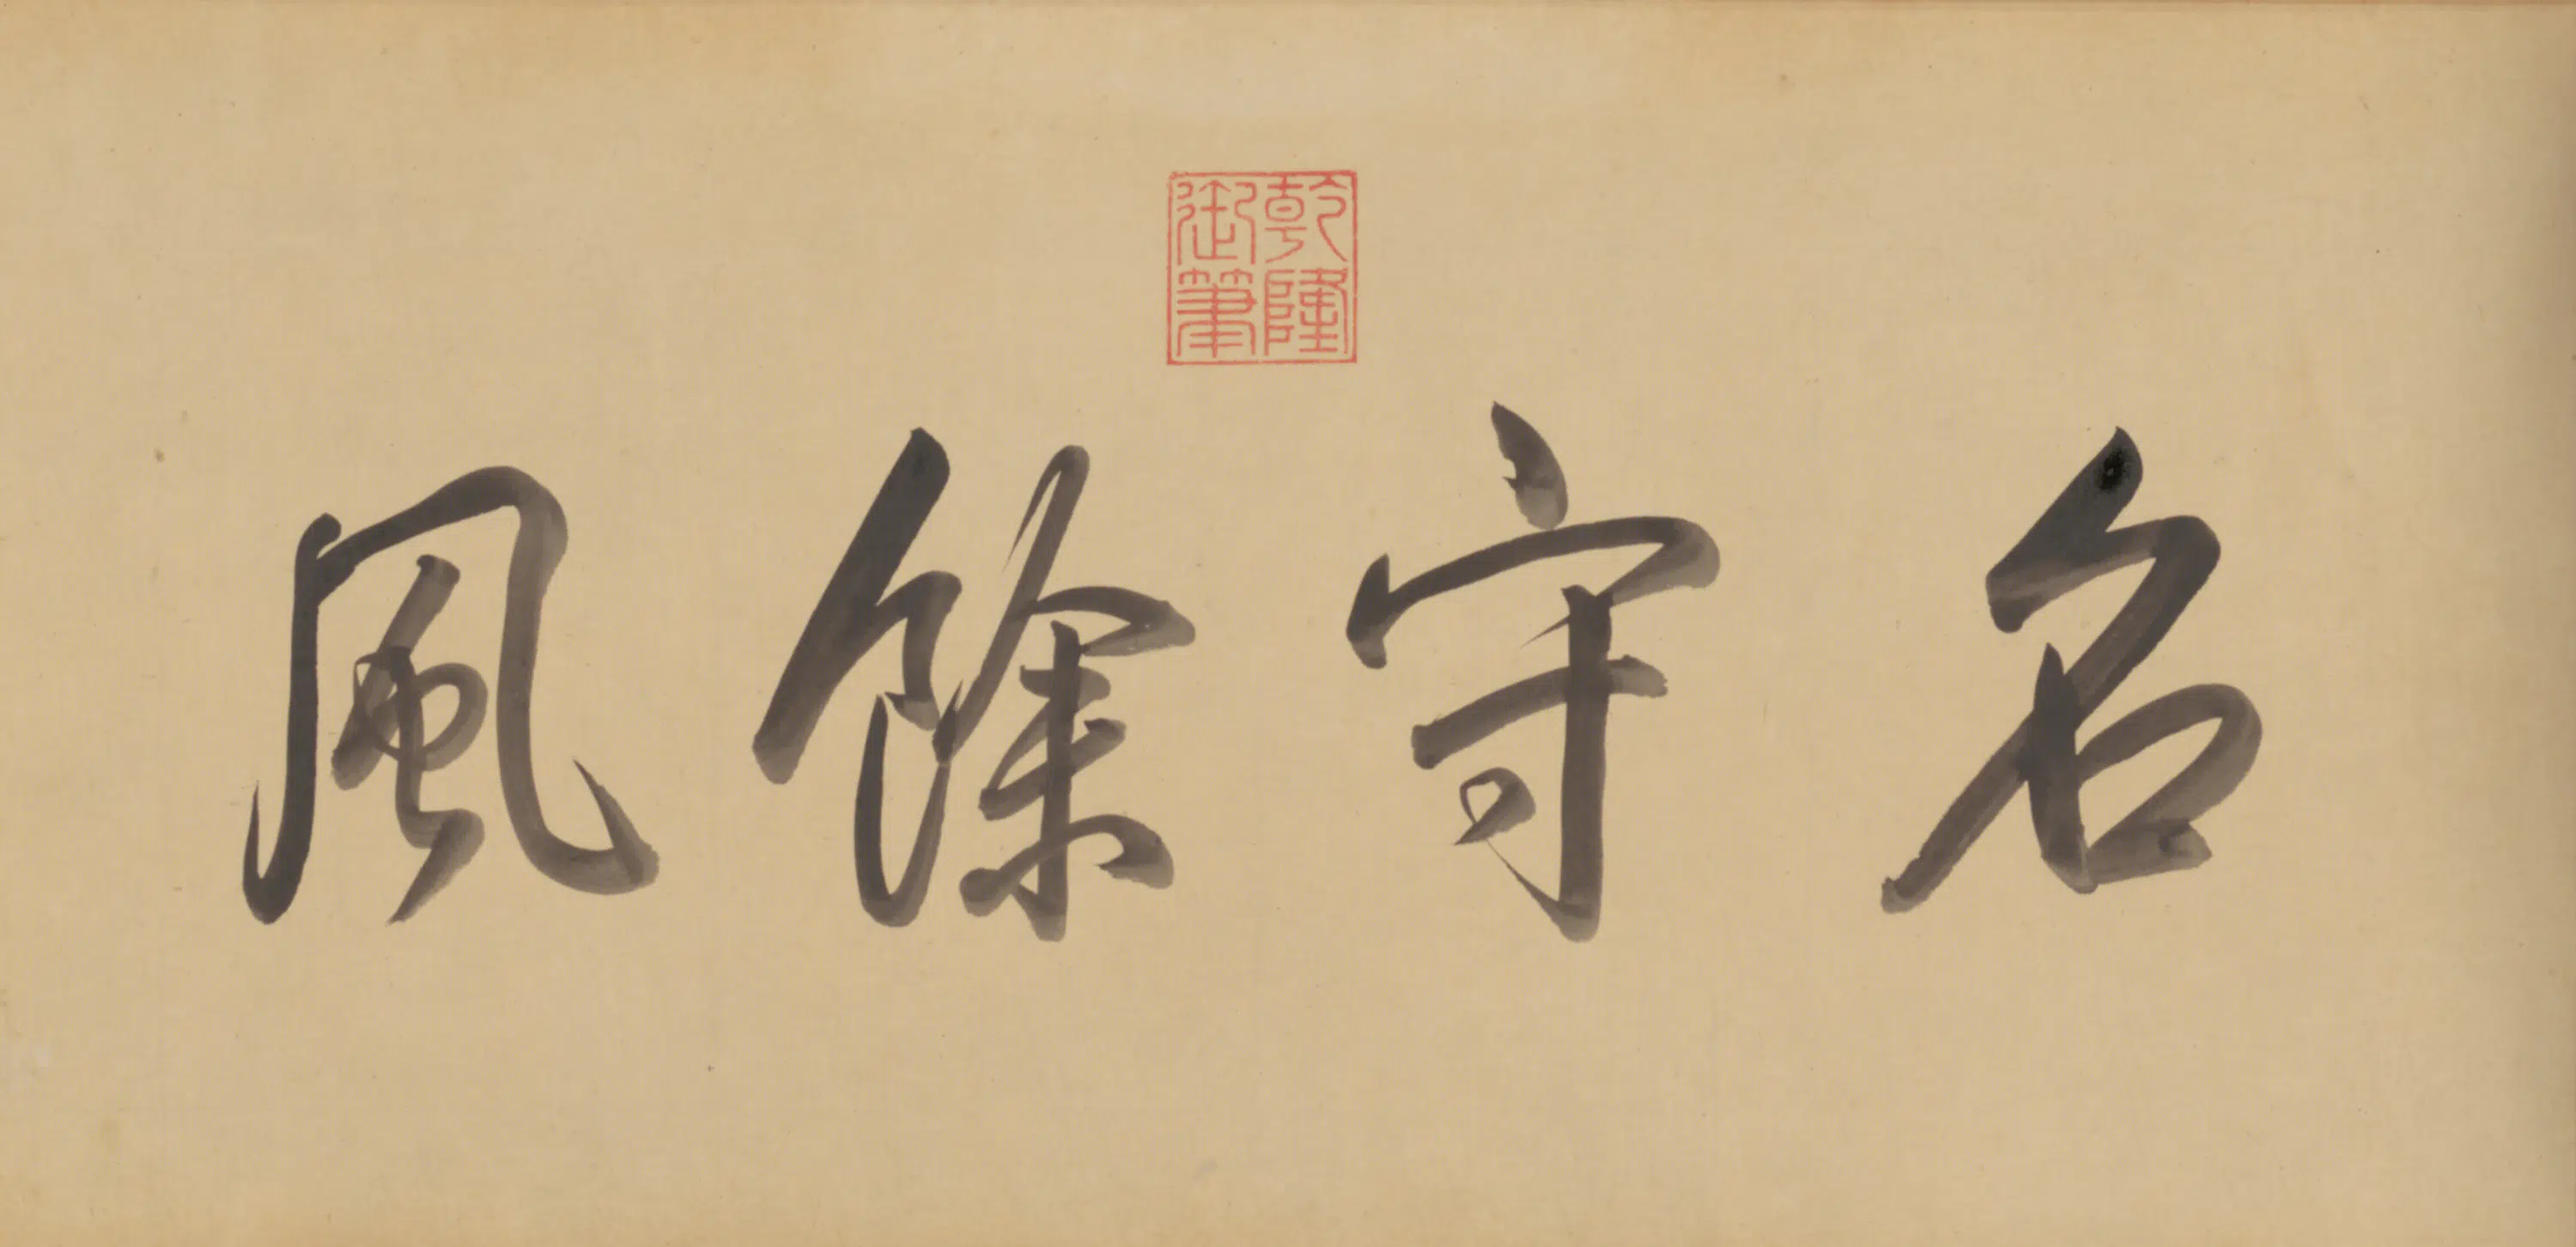 名守餘風
乾隆
御筆